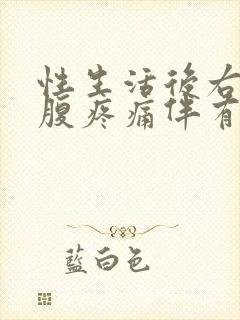 性生活後右
腹疼痛伴有
藍白色